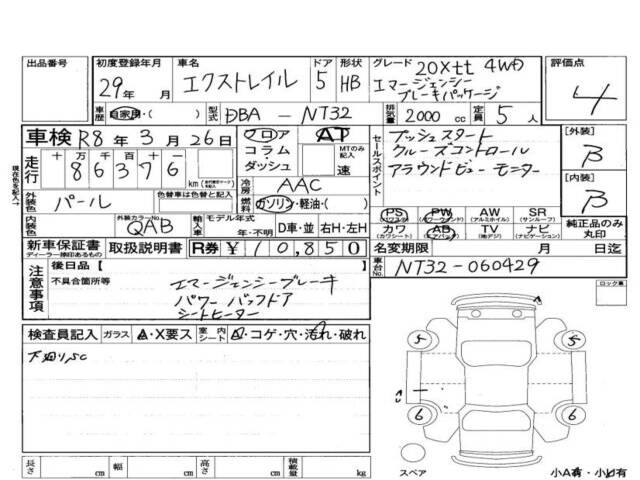 出品番号 初度登録年月 29年 月 車名 エクストレイル ドア 5 形状 HB グレード 20Xtt 4WD エマージェンシーブレーキパッケージ 評価点 4
車歴 自家用・( ) 型式 DBA - NT32 排気量 2000 cc 定員 5 人
車検 R8年3月26日 フロア コラム・ダッシュ AT MTのみ記入 速
走行 十万千百十一 86376 km
冷房 AAC
外装色 パール 色替車は色替と記入 燃料 ガソリン・軽油・( )
現在色を記入
内装色 外装カラーNo. QAB 輸入車 モデル年式 年・不明 D車・並 右H・左H
新車保証書 ディーラー捺印あるもの 取扱説明書 R券 ¥10,850
セールスポイント プッシュスタート
クルーズコントロール
アラウンドビューモニター
[外装] B
[内装] B
PS (パワステ) PW (パワーウィンドウ) AW (アルミホイル) SR (サンルーフ)
カワ (カワシート) AB (エアバック) TV (地デジ) ナビ (ナビゲーション)
純正品のみ丸印
名変期限 月 日迄
車台No. NT32-060429
注意事項 後日品 [ ]
不具合箇所等 エマージェンシーブレーキ
パワーバックドア
シートヒーター
ロック東
検査員記入 ガラス A・X要ス 室内シート A・コゲ・穴・汚れ・破れ
下廻りSC
5 5
6 6
スペア
小A有・小U有
長さ cm 幅 cm 高さ cm 積載量 kg